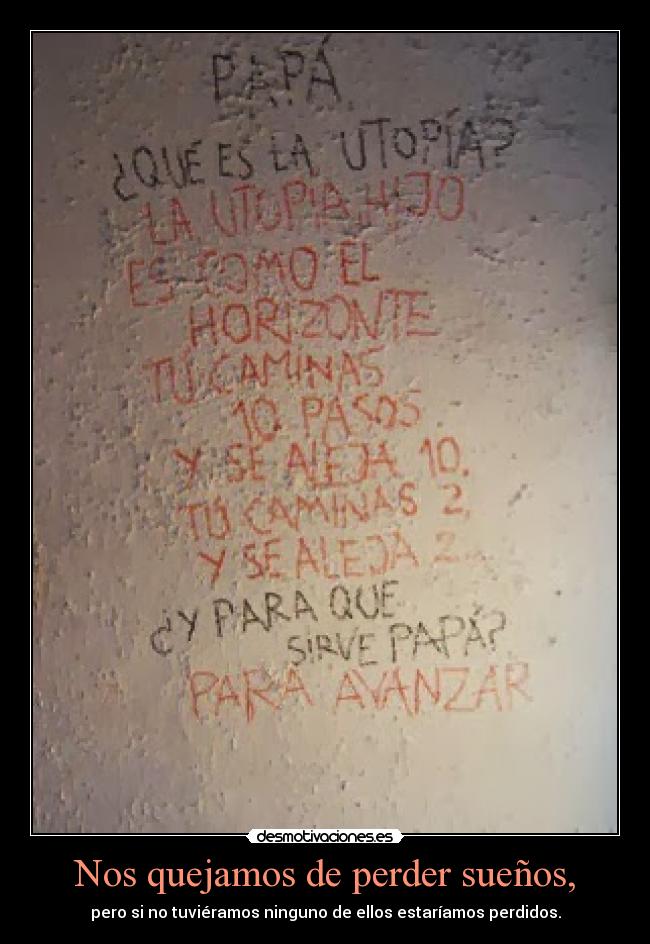 PAPÁ
¿QUÉ ES LA UTOPÍA?
LA UTOPIA, HIJO
ES COMO EL
HORIZONTE
TÚ CAMINAS
10 PASOS
Y SE ALEJA 10.
TÚ CAMINAS 2,
Y SE ALEJA 2...
¿Y PARA QUE
SIRVE PAPÁ?
PARA AVANZAR
desmotivaciones.es
Nos quejamos de perder sueños,
pero si no tuviéramos ninguno de ellos estaríamos perdidos.